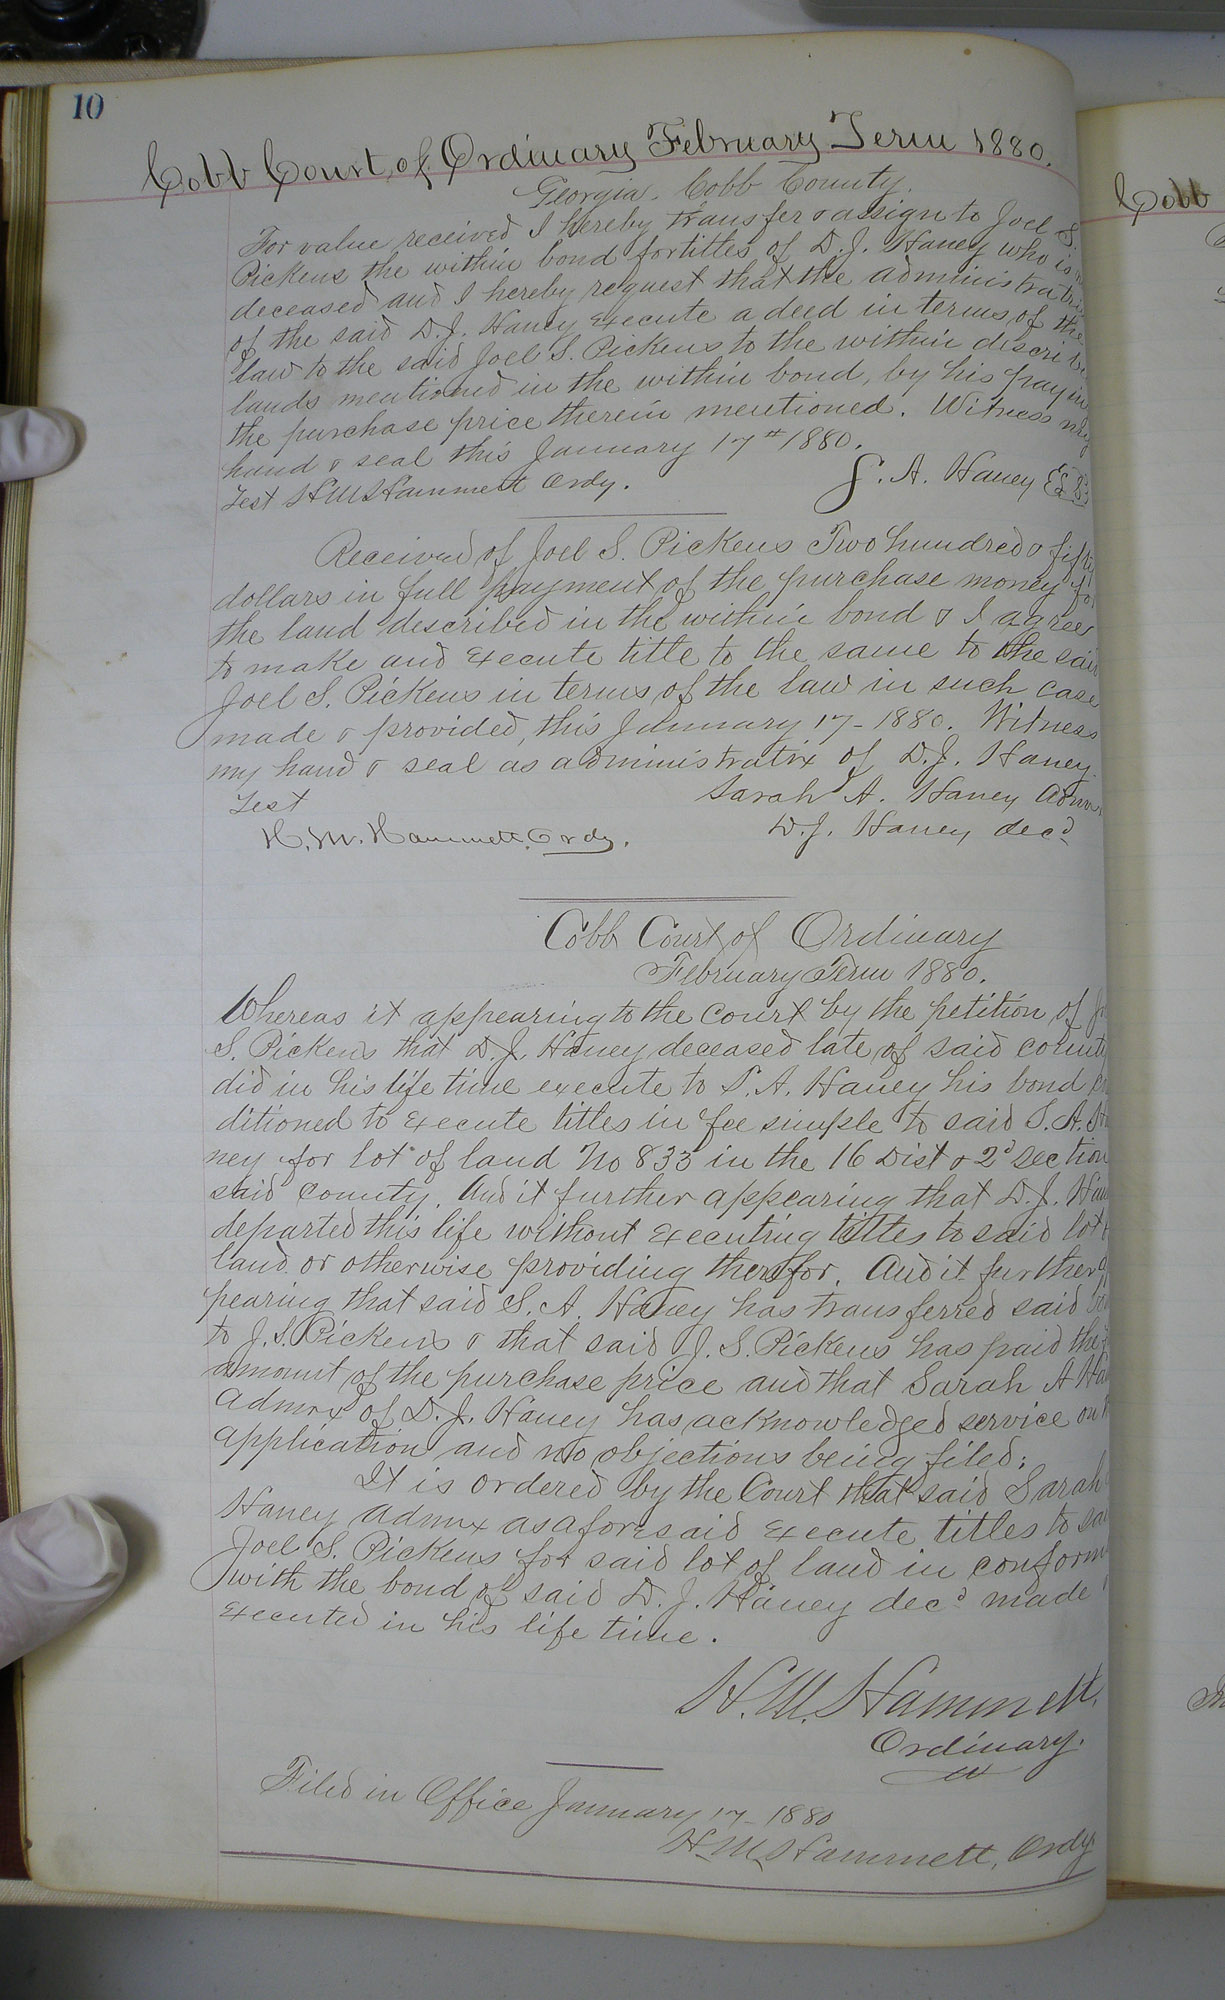 10
Cobb Court of Ordinary February Term 1880.
Georgia. Cobb County.
For value received I hereby transfer & assign to Joel S.
Pickens the within bond for titles of D. J. Haney who is
deceased and I hereby request that the administratrix
of the said D. J. Haney execute a deed in terms of the
law to the said Joel S. Pickens to the within
lands mentioned in the within bond, by his
the purchase price therein mentioned. Witness my
hand & seal this January 17th 1880.
Test H. M. Hammett Ordy.
S. A. Haney
Received of Joel S. Pickens Two hundred & fifty
dollars in full payment of the purchase money for
the land described in the within bond & I agree
to make and execute title to the same to the said
Joel S. Pickens in terms of the law in such case
made & provided, this January 17- 1880. Witness
my hand & seal as administratrix of D. J. Haney.
Test
Sarah A. Haney
H. M. Hammett, Ordy.
D. J. Haney decd
Cobb Court of Ordinary
February Term 1880.
Whereas it appearing to the Court by the petition of
S. Pickens that D. J. Haney deceased late of said
did in his life time execute to S. A. Haney his bond
ditioned to execute titles in fee simple to said S. A.
ney for lot of land No 833 in the 16 Dist & 2d section
said county. And it further appearing that D. J.
departed this life without executing titles to said lot
land or otherwise providing therefor. And it further
pearing that said S. A. Haney has transferred said
to J. S. Pickens & that said J. S. Pickens has paid the
amount of the purchase price and that Sarah A
Admrx of D. J. Haney has acknowledged service on
application and no objections being filed;
It is ordered by the Court that said Sarah
Haney admrx as aforesaid execute titles to
Joel S. Pickens for said lot of land in
with the bond of said D. J. Haney decd made
executed in his life time.
H. M. Hammett,
Ordinary.
Filed in Office January 17- 1880
H. M. Hammett, Ordy
Cobb